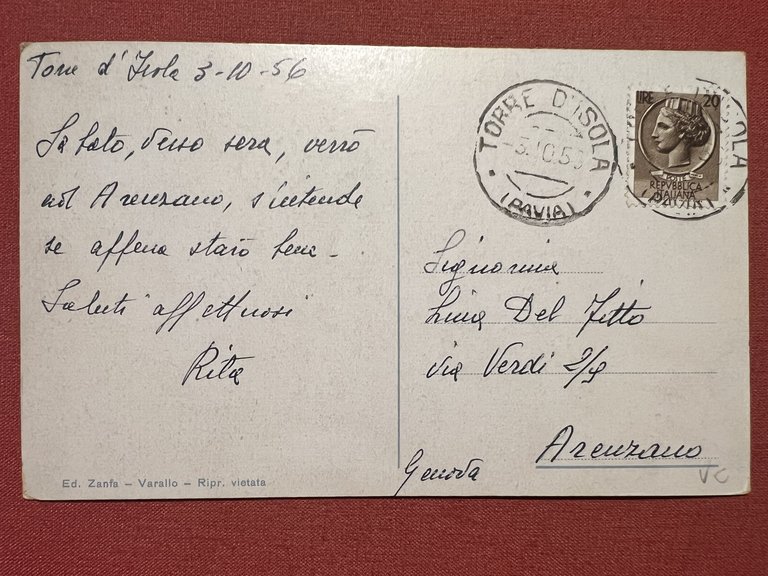 Torre d'Isola 3-10-56
Sabato, verso sera, verrò
ad Arenzano, s'intende
se appena starò bene -
Saluti affettuosi
Rita
Ed. Zanfa – Varallo – Ripr. vietata
TORRE D'ISOLA
(PAVIA)
LIRE 20
POSTE
REPVBBLICA
ITALIANA
Signorina
Lina Del Fitto
Via Verdi 2/9
Arenzano
Genova